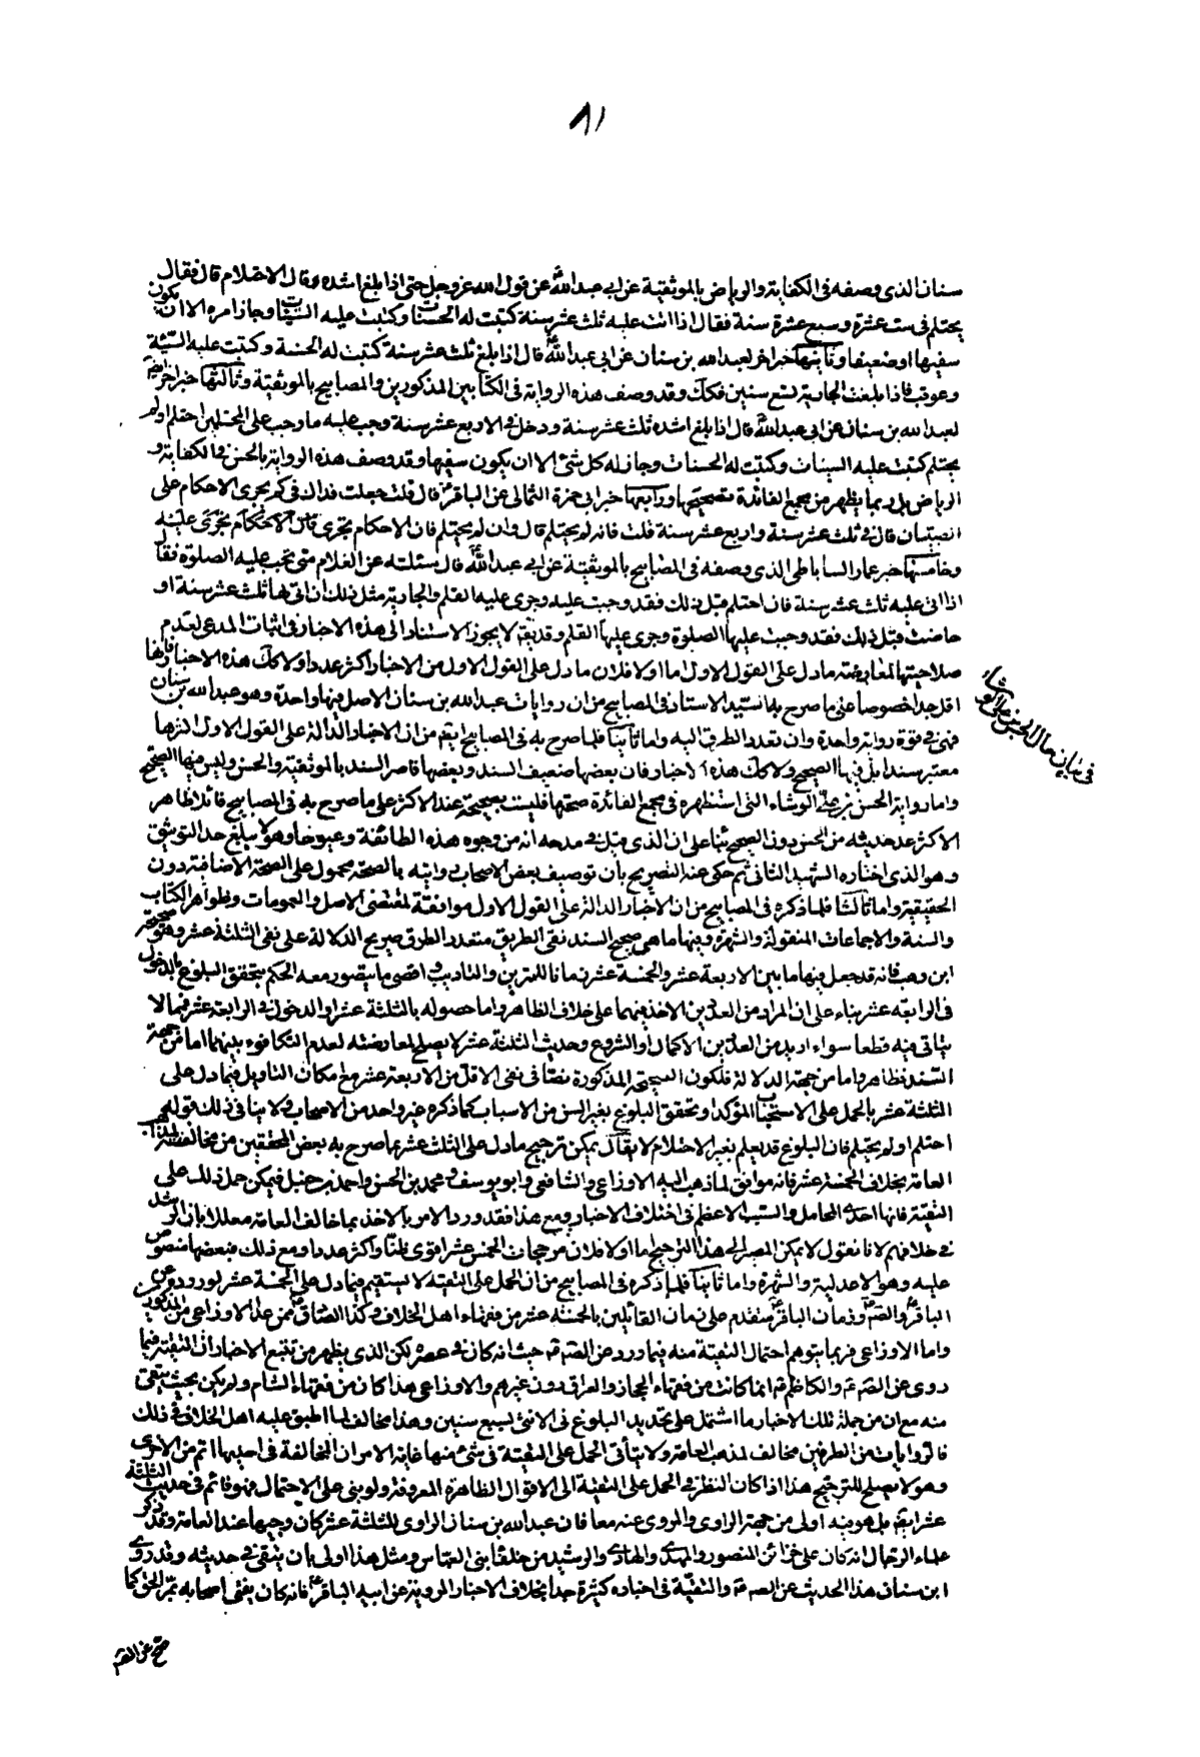 ٨١
سنان الذى وصفه فى الكفاية والرياض بالموثقية عن ابى عبد الله ع عن قول الله عز وجل حتى اذا بلغ اشده قال الاحتلام قال فقال
يحتلم فى ست عشرة و سبع عشرة سنة فقال اذا اتت عليه ثلث عشر سنة كتبت له الحسنات و كتبت عليه السيئات و جاز امره الا ان يكون
سفيها او ضعيفا و ثانيها خبر اخر لعبد الله بن سنان عن ابى عبد الله ع قال اذا بلغ ثلث عشر سنة كتبت له الحسنة و كتبت عليه السيئة
و عوقب فاذا بلغت الجارية تسع سنين فكك و قد وصف هذه الرواية فى الكتابين المذكورين و المصابيح بالموثقية و ثالثها خبر اخر
لعبد الله بن سنان عن ابى عبد الله ع قال اذا بلغ اشده ثلث عشر سنة و دخل فى الاربع عشر سنة وجب عليه ما وجب على المحتلمين احتلم او لم
يحتلم كتبت عليه السيئات و كتبت له الحسنات و جاز له كل شئ الا ان يكون سفيها و قد وصف هذه الرواية بالحسن فى الكفاية و
الرياض بل ربما يظهر من مجمع الفائدة تصحيحها و رابعها خبر ابى حمزة الثمالى عن الباقر ع قال قلت جعلت فداك فى كم يجرى الاحكام على
الصبيان قال فى ثلث عشر سنة و اربع عشر سنة قلت فانه لم يحتلم قال و ان لم يحتلم فان الاحكام تجرى عليه
و خامسها خبر عمار الساباطى الذى وصفه فى المصابيح بالموثقية عن ابى عبد الله ع قال سئلته عن الغلام متى تجب عليه الصلوة فقال
اذا اتى عليه ثلث عشر سنة فان احتلم قبل ذلك فقد وجبت عليه و جرى عليه القلم و الجارية مثل ذلك ان اتى لها ثلث عشر سنة او
حاضت قبل ذلك فقد وجبت عليها الصلوة و جرى عليها القلم و قد يقال لا يجوز الاستناد الى هذه الاخبار فى اثبات المدعى لعدم
صلاحيتها لمعارضة ما دل على القول الاول اما اولا فلان ما دل على القول الاول من الاخبار اكثر عددا و لا كك هذه الاخبار فانها
اقل جدا خصوصا على ما صرح به السيد الاستاد فى المصابيح من ان روايات عبد الله بن سنان الاصل فيها واحدة و هو عبد الله بن سنان
فهى فى قوة رواية واحدة و ان تعدد الطرق اليه و اما ثانيا فلما صرح به فى المصابيح ايضا من ان الاخبار الدالة على القول الاول اكثرها
معتبر سندا بل فيها الصحيح و لا كك هذه الاخبار فان بعضها ضعيف السند و بعضها قاصر السند بالموثقية و الحسن و ليس فيها الصحيح
و اما رواية الحسن بن على الوشاء التى استظهر فى مجمع الفائدة صحتها فليست بصحيحة عند الاكثر على ما صرح به فى المصابيح قائلا ظاهر
الاكثر عد حديثه من الحسن دون الصحيح بناء على ان الذى قيل فى مدحه انه من وجوه هذه الطائفة و عيونها و هو لا يبلغ حد التوثيق
و هو الذى اختاره الشهيد الثانى ثم حكى عنه التصريح بأن توصيف بعض الاصحاب روايته بالصحة محمول على الصحة الاضافية دون
الحقيقية و اما ثالثا فلما ذكره فى المصابيح من ان الاخبار الدالة على القول الاول موافقة لمقتضى الاصل و العمومات و ظواهر الكتاب
و السنة و الاجماعات المنقولة و الشهرة و فيها ما هى صحيح السند نقى الطريق متعدد الطرق صريح الدلالة على نفى الثلثة عشر و هو صحيحة
ابن وهب فانه قد جعل فيها ما بين الاربعة عشر و الخمسة عشر زمانا للتمرين و التاديب و اقصى ما يتصور معه الحكم بتحقق البلوغ بالدخول
فى الرابعة عشر بناء على ان المراد من العددين الاخذ فيهما على خلاف الظاهر و اما حصوله بالثلثة عشر او الدخول فى الرابعة عشر فمما لا
يتاتى فيه قطعا سواء اريد من العددين الاكمال او الشروع و حديث الثلثة عشر لا يصلح لمعارضته لعدم التكافوء بينهما اما من جهة
السند فظاهر و اما من جهة الدلالة فلكون الصحيحة المذكورة نصا فى نفى الاقل من الاربعة عشر مع امكان التاويل فيما دل على
الثلثة عشر بالحمل على الاستحباب المؤكد او تحقق البلوغ بغير السن من الاسباب كما ذكره غير واحد من الاصحاب و لا ينافى ذلك قوله
احتلم او لم يحتلم فان البلوغ قد يعلم بغير الاحتلام لا يقال يمكن ترجيح ما دل على الثلث عشر بما صرح به بعض المحققين من مخالفته لمذاهب
العامة بخلاف الخمسة عشر فانه موافق لما ذهب اليه الاوزاعى و الشافعى و ابو يوسف و محمد بن الحسن و احمد بن حنبل فيمكن حمل ذلك على
التقية فانها احد المحامل و السبب الاعظم فى اختلاف الاخبار و مع هذا فقد ورد الامر بالاخذ بما خالف العامة معللا بان الرشد
فى خلافهم لانا نقول لا يمكن المصير الى هذا الترجيح اما اولا فلان مرجحات الخمس عشر اقوى ظنا و اكثر عددا و مع ذلك فبعضها منصوص
عليه و هو الاعدلية و الشهرة و اما ثانيا فلما ذكره فى المصابيح من ان الحمل على التقية لا يستقيم فيما دل على الخمسة عشر لوروده عن
الباقر ع و الصم و زمان الباقر ع متقدم على زمان القائلين بالخمسة عشر من فقهاء اهل الخلاف و كذا الصادق ع فمن عدا الاوزاعى من المذكورين
و اما الاوزاعى فربما يتوهم احتمال التقية منه فيما ورد عن الصم حيث انه كان فى عصره لكن الذى يظهر من تتبع الاخبار ان التقية فيما
روى عن الصم و الكاظم ع انما كانت من فقهاء الحجاز و العراق دون غيرهم و الاوزاعى هذا كان من فقهاء الشام و لم يكن بحيث يتقى
منه مع ان من جملة تلك الاخبار ما اشتمل على تحديد البلوغ فى الانثى بسبع سنين و هذا مخالف لما اطبق عليه اهل الخلاف فى ذلك
فالروايات من الطرفين مخالف لمذهب العامة و لا يتأتى الحمل على التقية فى شئ منها غاية الامر ان المخالفة فى احديهما اتم من الاخرى
و هو لا يصلح للترجيح هذا اذا كان النظر فى الحمل على التقية الى الاقوال الظاهرة المعروفة و لو بنى على الاحتمال فهو قائم فى حديث الثلثة
عشر ايضا بل هو فيه اولى من جهة الراوى و المروى عنه معا فان عبد الله بن سنان الراوى للثلثة عشر كان وجيها عند العامة و قد ذكر
علماء الرجال انه كان على خزائن المنصور و المهدى و الهادى و الرشيد من خلفاء بنى العباس و مثل هذا اولى بان يتقى فى حديثه و قد روى
ابن سنان هذا الحديث عن الصم و التقية فى اخباره كثيرة جدا بخلاف الاخبار المروية عن ابيه الباقر ع فانه كان يفتى اصحابه بمر الحق كما
فى بيان حال الحسن بن على الوشاء
صح عن الصم